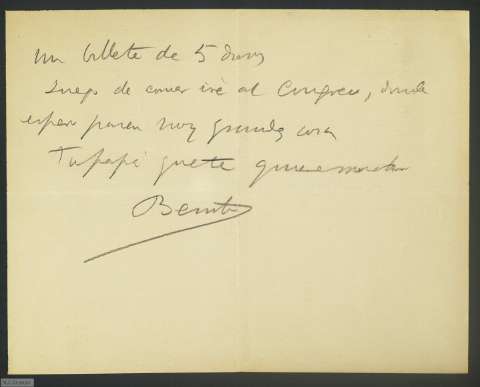 un billete de 5 duros
Luego de comer iré al Congreso, donde
espero pasen hoy grandes cosas
Tu papá que te quiere mucho
Benito